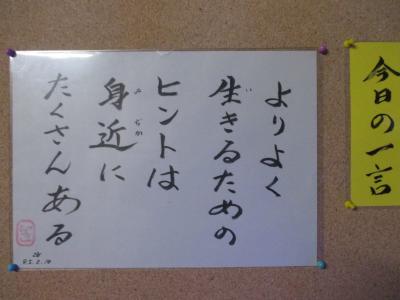 今日の一言
よりよく
生きるための
ヒントは
身近に
たくさんある